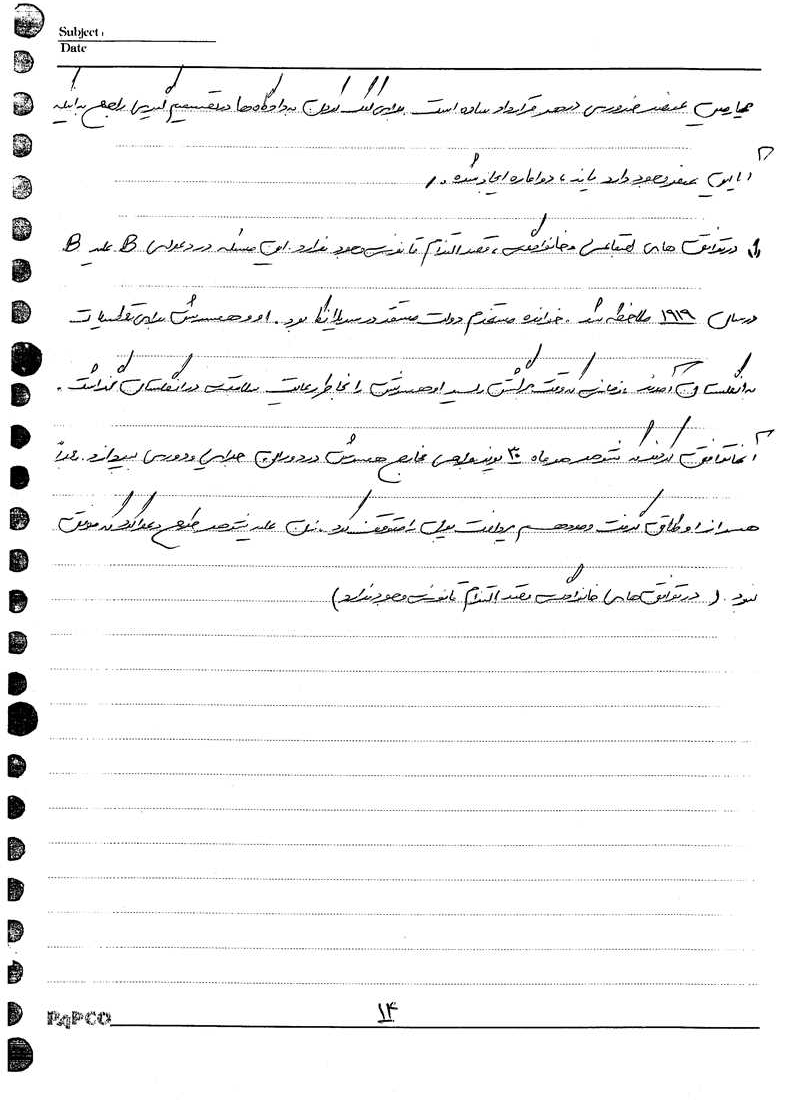 Subject :
Date
چهارمین عنصر ضروری در هر قرارداد ساده است. برای کمک کردن به دادگاه‌ها در تصمیم گیری راجع به اینکه
آیا این عنصر وجود دارد یا نه، دو اماره ایجاد شده.
1) در توافق های اجتماعی و خانوادگی، قصد التزام قانونی وجود ندارد. این مسئله در دعوای B علیه B
در سال ۱۹۱۹ ملاحظه شد. خوانده مستخدم دولت مستقر در سریلانکا بود. او و همسرش برای تعطیلات
به انگلستان آمدند. زمانی که وقت برگشتن رسید او همسرش را بخاطر رعایت سلامتی در انگلستان گذاشت.
آنها توافق کردند که شوهر هر ماه ۳۰ پوند بابت مخارج همسرش در دوران جدایی و دوری بپردازد. بعداً
همسر از او طلاق گرفت و مرد هم پرداخت پول را متوقف کرد. زن علیه شوهر طرح دعوا کرد که موفق
نبود. (در توافق های خانوادگی قصد التزام قانونی وجود ندارد)
PAPCO
۱۴